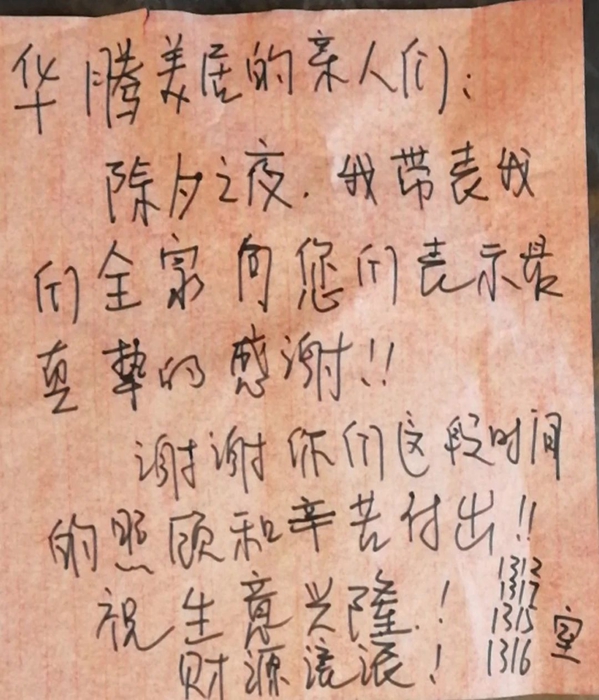 华腾美居的亲人们：
除夕之夜．我带表我
们全家向您们表示最
真挚的感谢!!
谢谢你们这段时间
的照顾和辛苦付出!!
祝生意兴隆.!
财源滚滚!
1312
1317
1315
1316室